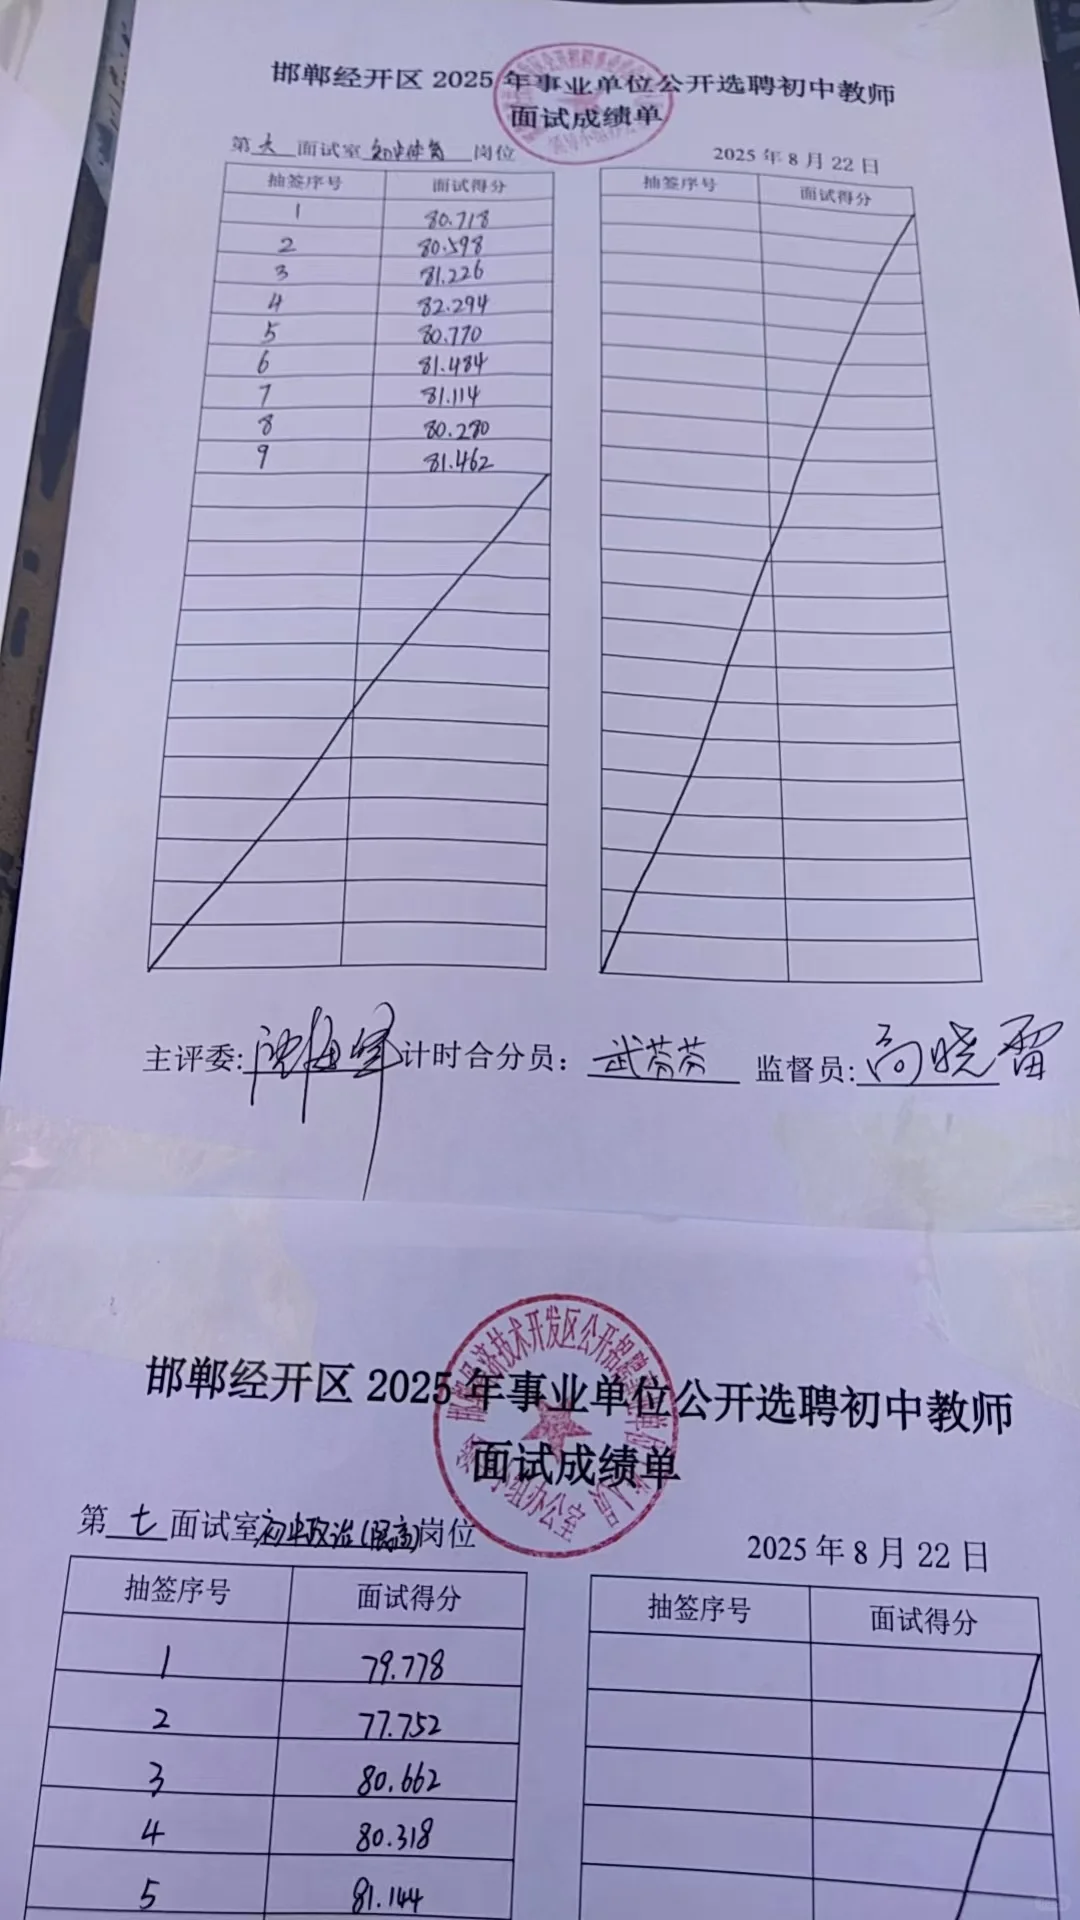 邯郸经开区 2025 年事业单位公开选聘初中教师
面试成绩单
第 六 面试室 初中体育 岗位
2025 年 8 月 22 日
抽签序号 面试得分
1 80.718
2 80.598
3 81.226
4 82.294
5 80.770
6 81.484
7 81.114
8 80.280
9 81.462
抽签序号 面试得分
主评委: 计时合分员: 武芬芬 监督员: 高晓雷
邯郸经开区 2025 年事业单位公开选聘初中教师
面试成绩单
经济技术开发区公开招聘
小组办公室
第 七 面试室 初中政治(民高) 岗位
2025 年 8 月 22 日
抽签序号 面试得分
1 79.778
2 77.752
3 80.662
4 80.318
5 81.144
抽签序号 面试得分